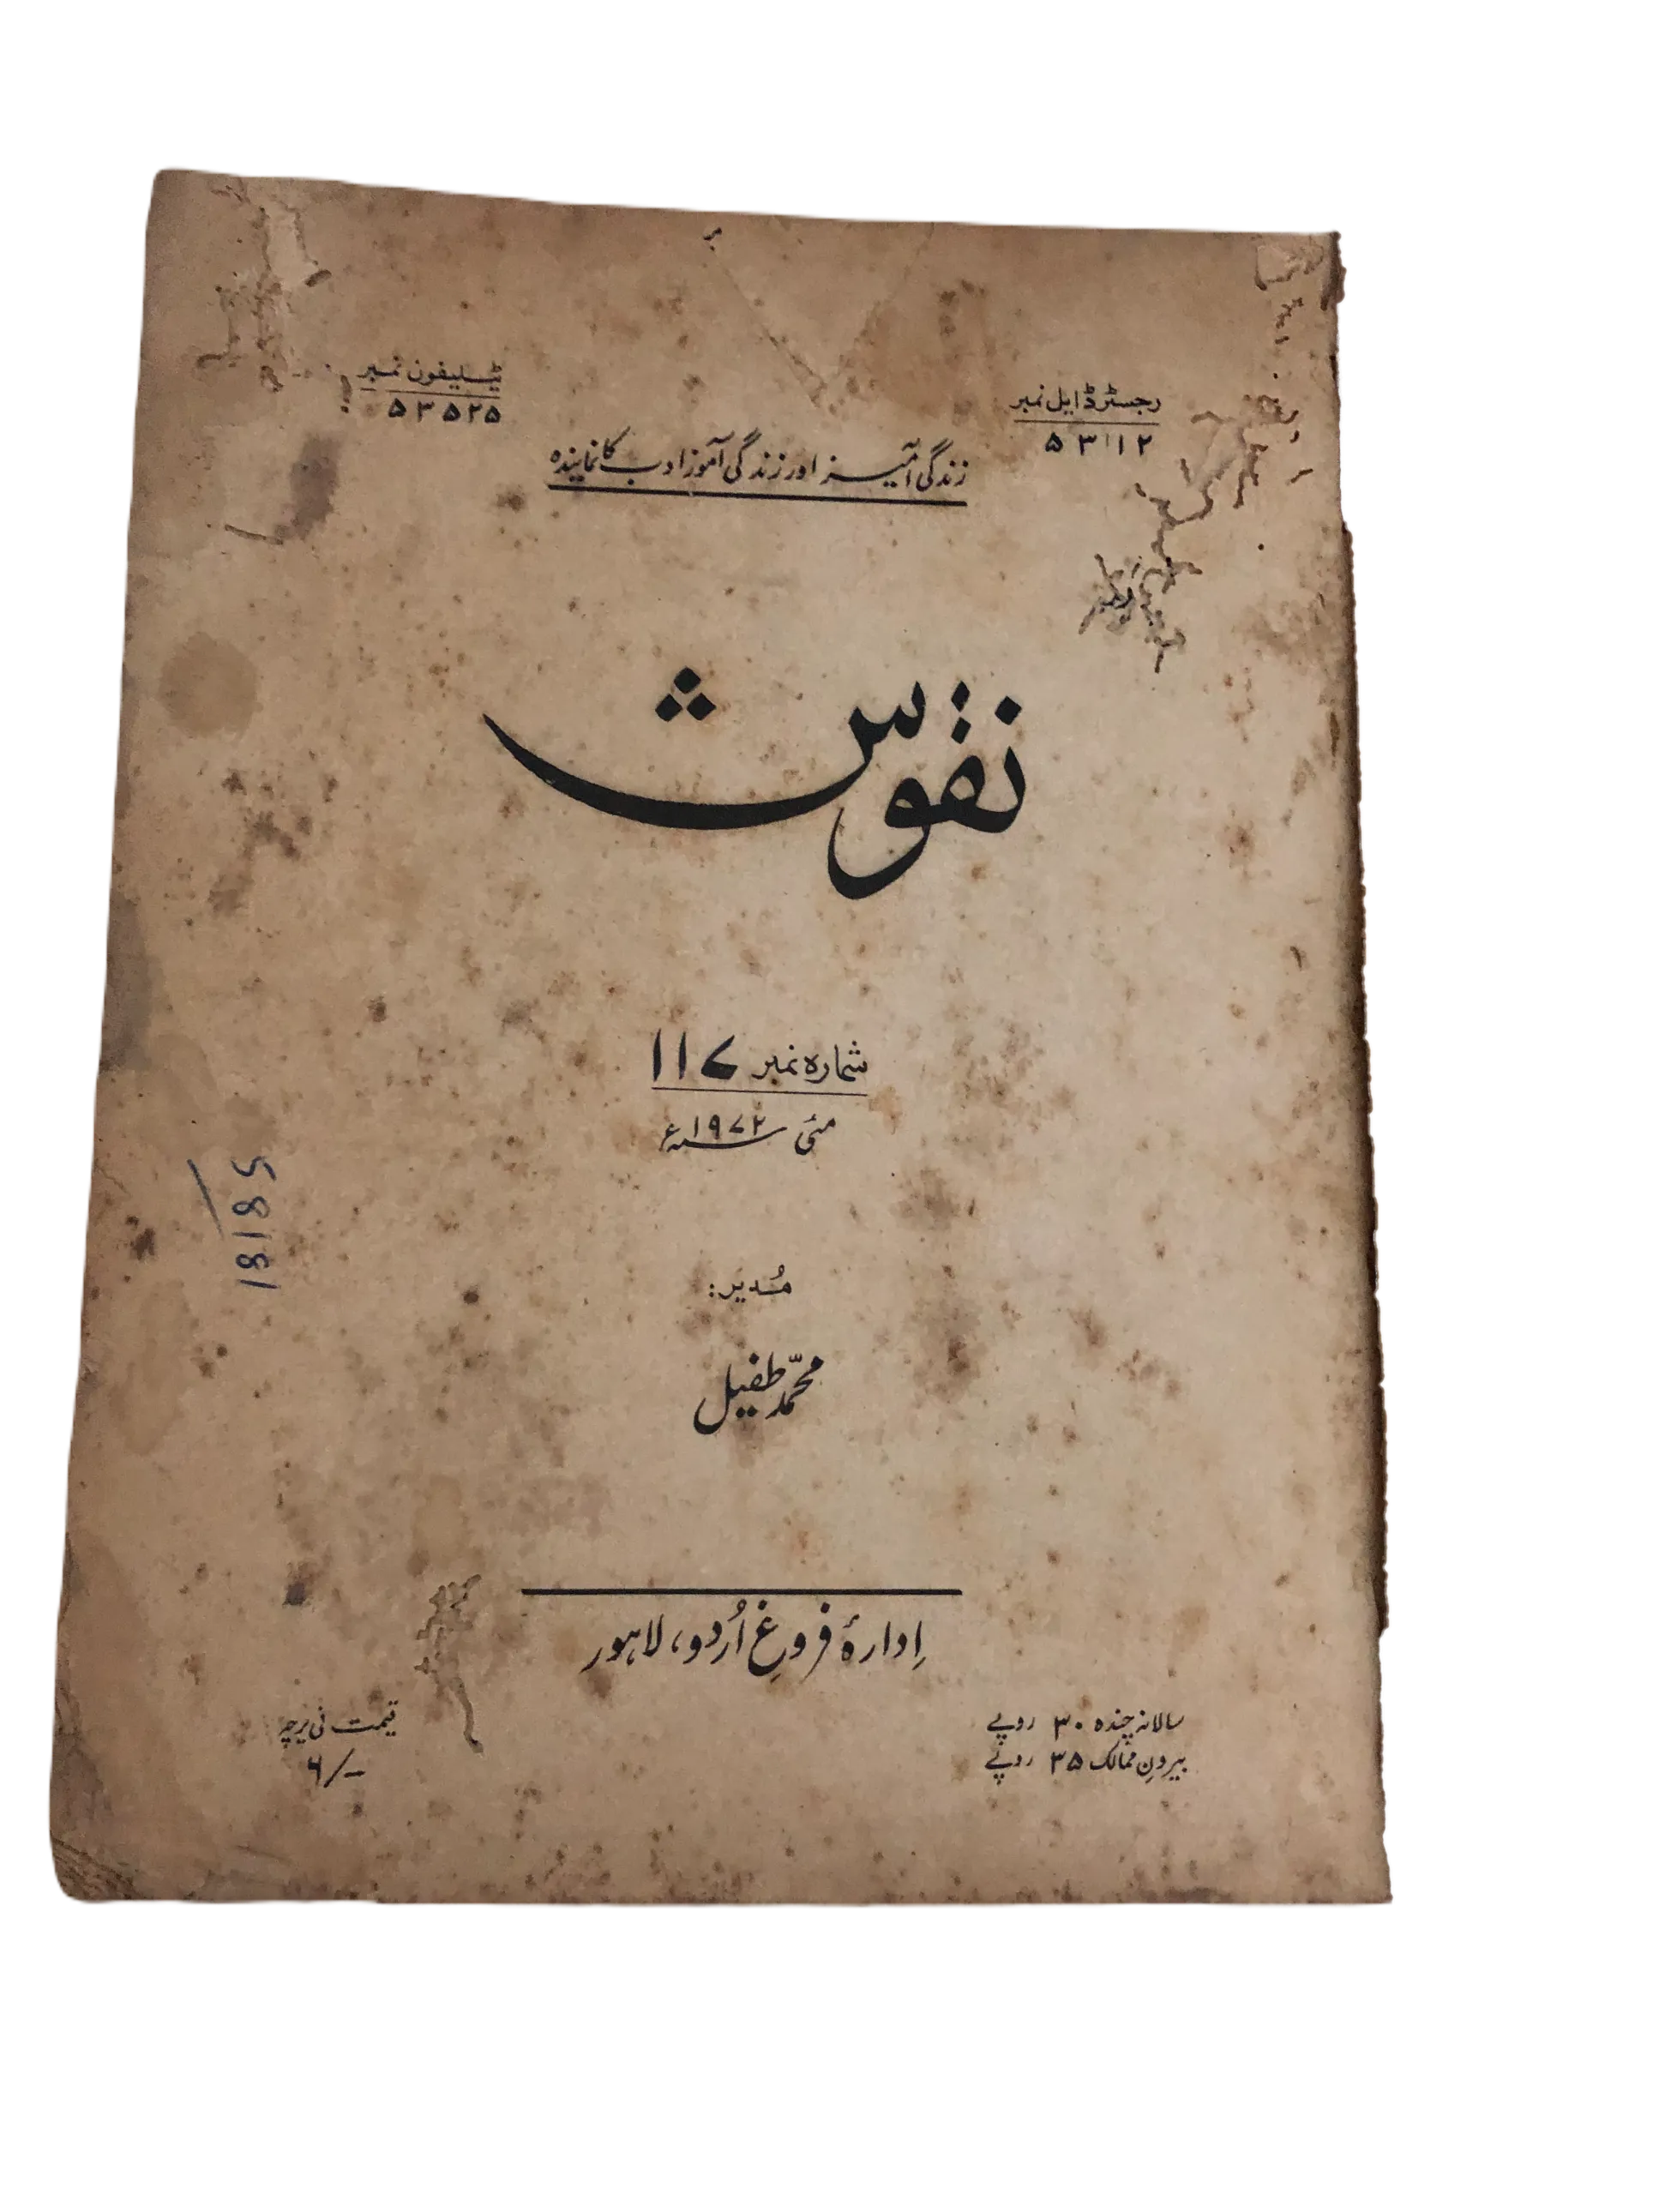 رجسٹرڈ ایل نمبر
۵۳۱۲
ٹیلیفون نمبر
۵۳۵۲۵
زندگی آمیز اور زندگی آموز ادب کا نمایندہ
نقوش
شمارہ نمبر ۱۱۷
مئی ۱۹۷۲ء
مُدیر:
محمّد طفیل
اِدارۂ فروغِ اُردو، لاہور
سالانہ چندہ ۳۰ روپے
بیرونِ ممالک ۳۵ روپے
قیمت فی پرچہ
۶/-
18185